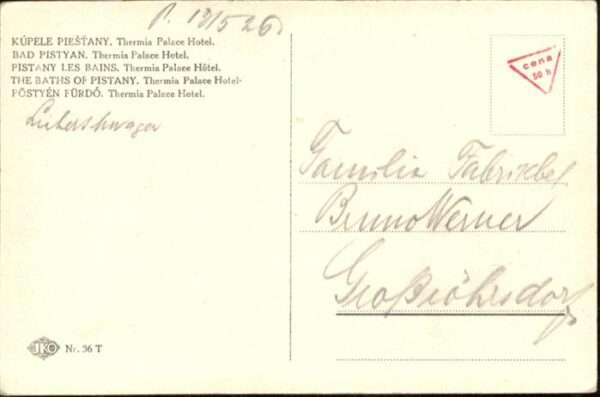 P. 13/5 26.
KÚPELE PIEŠŤANY. Thermia Palace Hotel.
BAD PISTYAN. Thermia Palace Hotel.
PISTANY LES BAINS. Thermia Palace Hôtel.
THE BATHS OF PISTANY. Thermia Palace Hotel-
PÖSTYÉN FÜRDŐ. Thermia Palace Hotel.
cena
50 h
Familie Fabrikbes
Bruno Werner
Großröhrsdorf
JKO Nr. 36 T